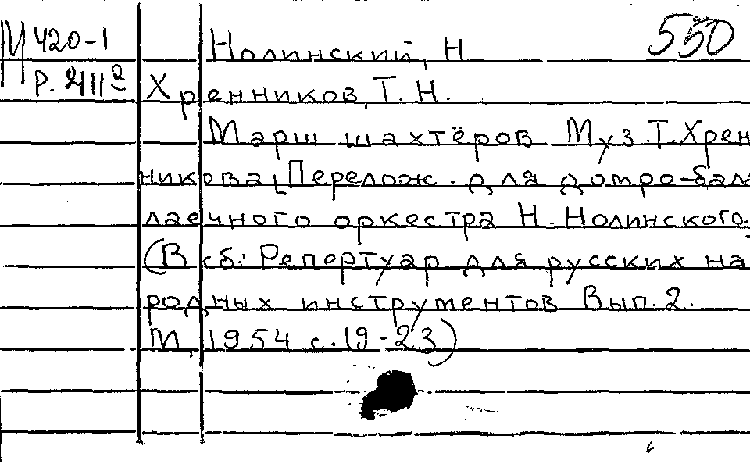 М 420-1
Р. 2111а
550
Нолинский, Н
Хренников, Т. Н.
Марш шахтёров Муз. Т. Хрен
никова [Перелож. для домро-бала
лаечного оркестра Н. Нолинского.
(В сб: Репертуар для русских на
родных инструментов Вып. 2.
М, 1954 с. 19-23)